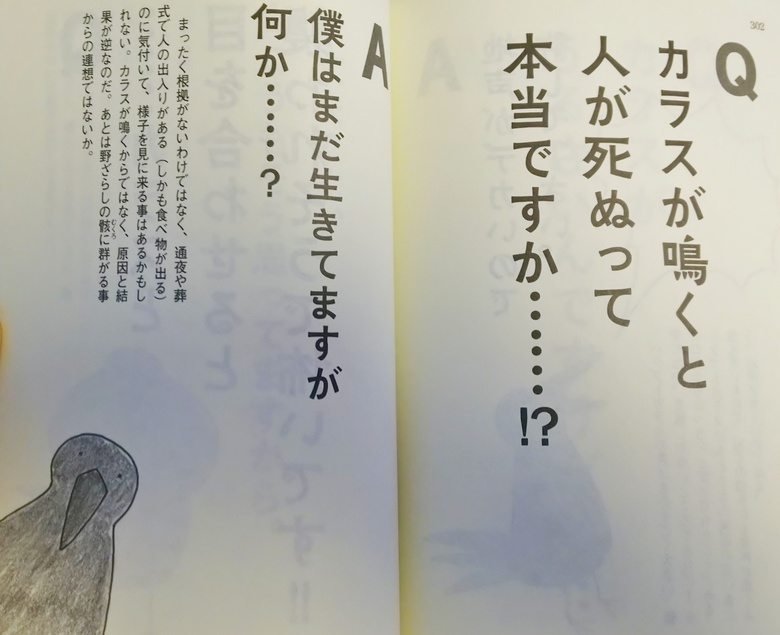 302
Q
カラスが鳴くと
人が死ぬって
本当ですか……!?
A
僕はまだ生きてますが
何か……?
まったく根拠がないわけではなく、通夜や葬
式で人の出入りがある(しかも食べ物が出る)
のに気付いて、様子を見に来る事はあるかもし
れない。カラスが鳴くからではなく、原因と結
果が逆なのだ。あとは野ざらしの骸に群がる事
むくろ
からの連想ではないか。